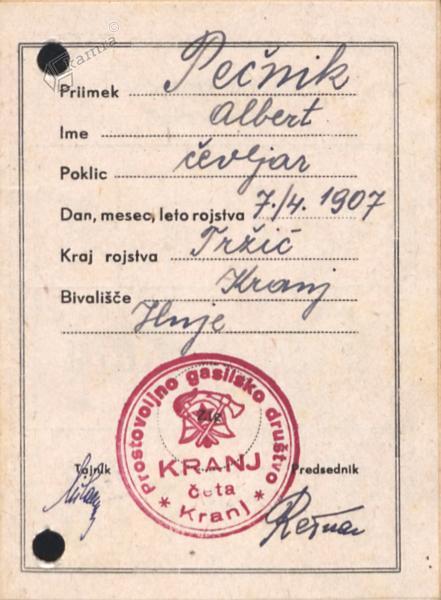 kamra
Priimek Pečnik
Ime Albert
Poklic čevljar
Dan, mesec, leto rojstva 7./4. 1907
Kraj rojstva Tržič
Bivališče Kranj
Huje
Prostovoljno gasilsko društvo
KRANJ
četa
* Kranj *
Tajnik Predsednik